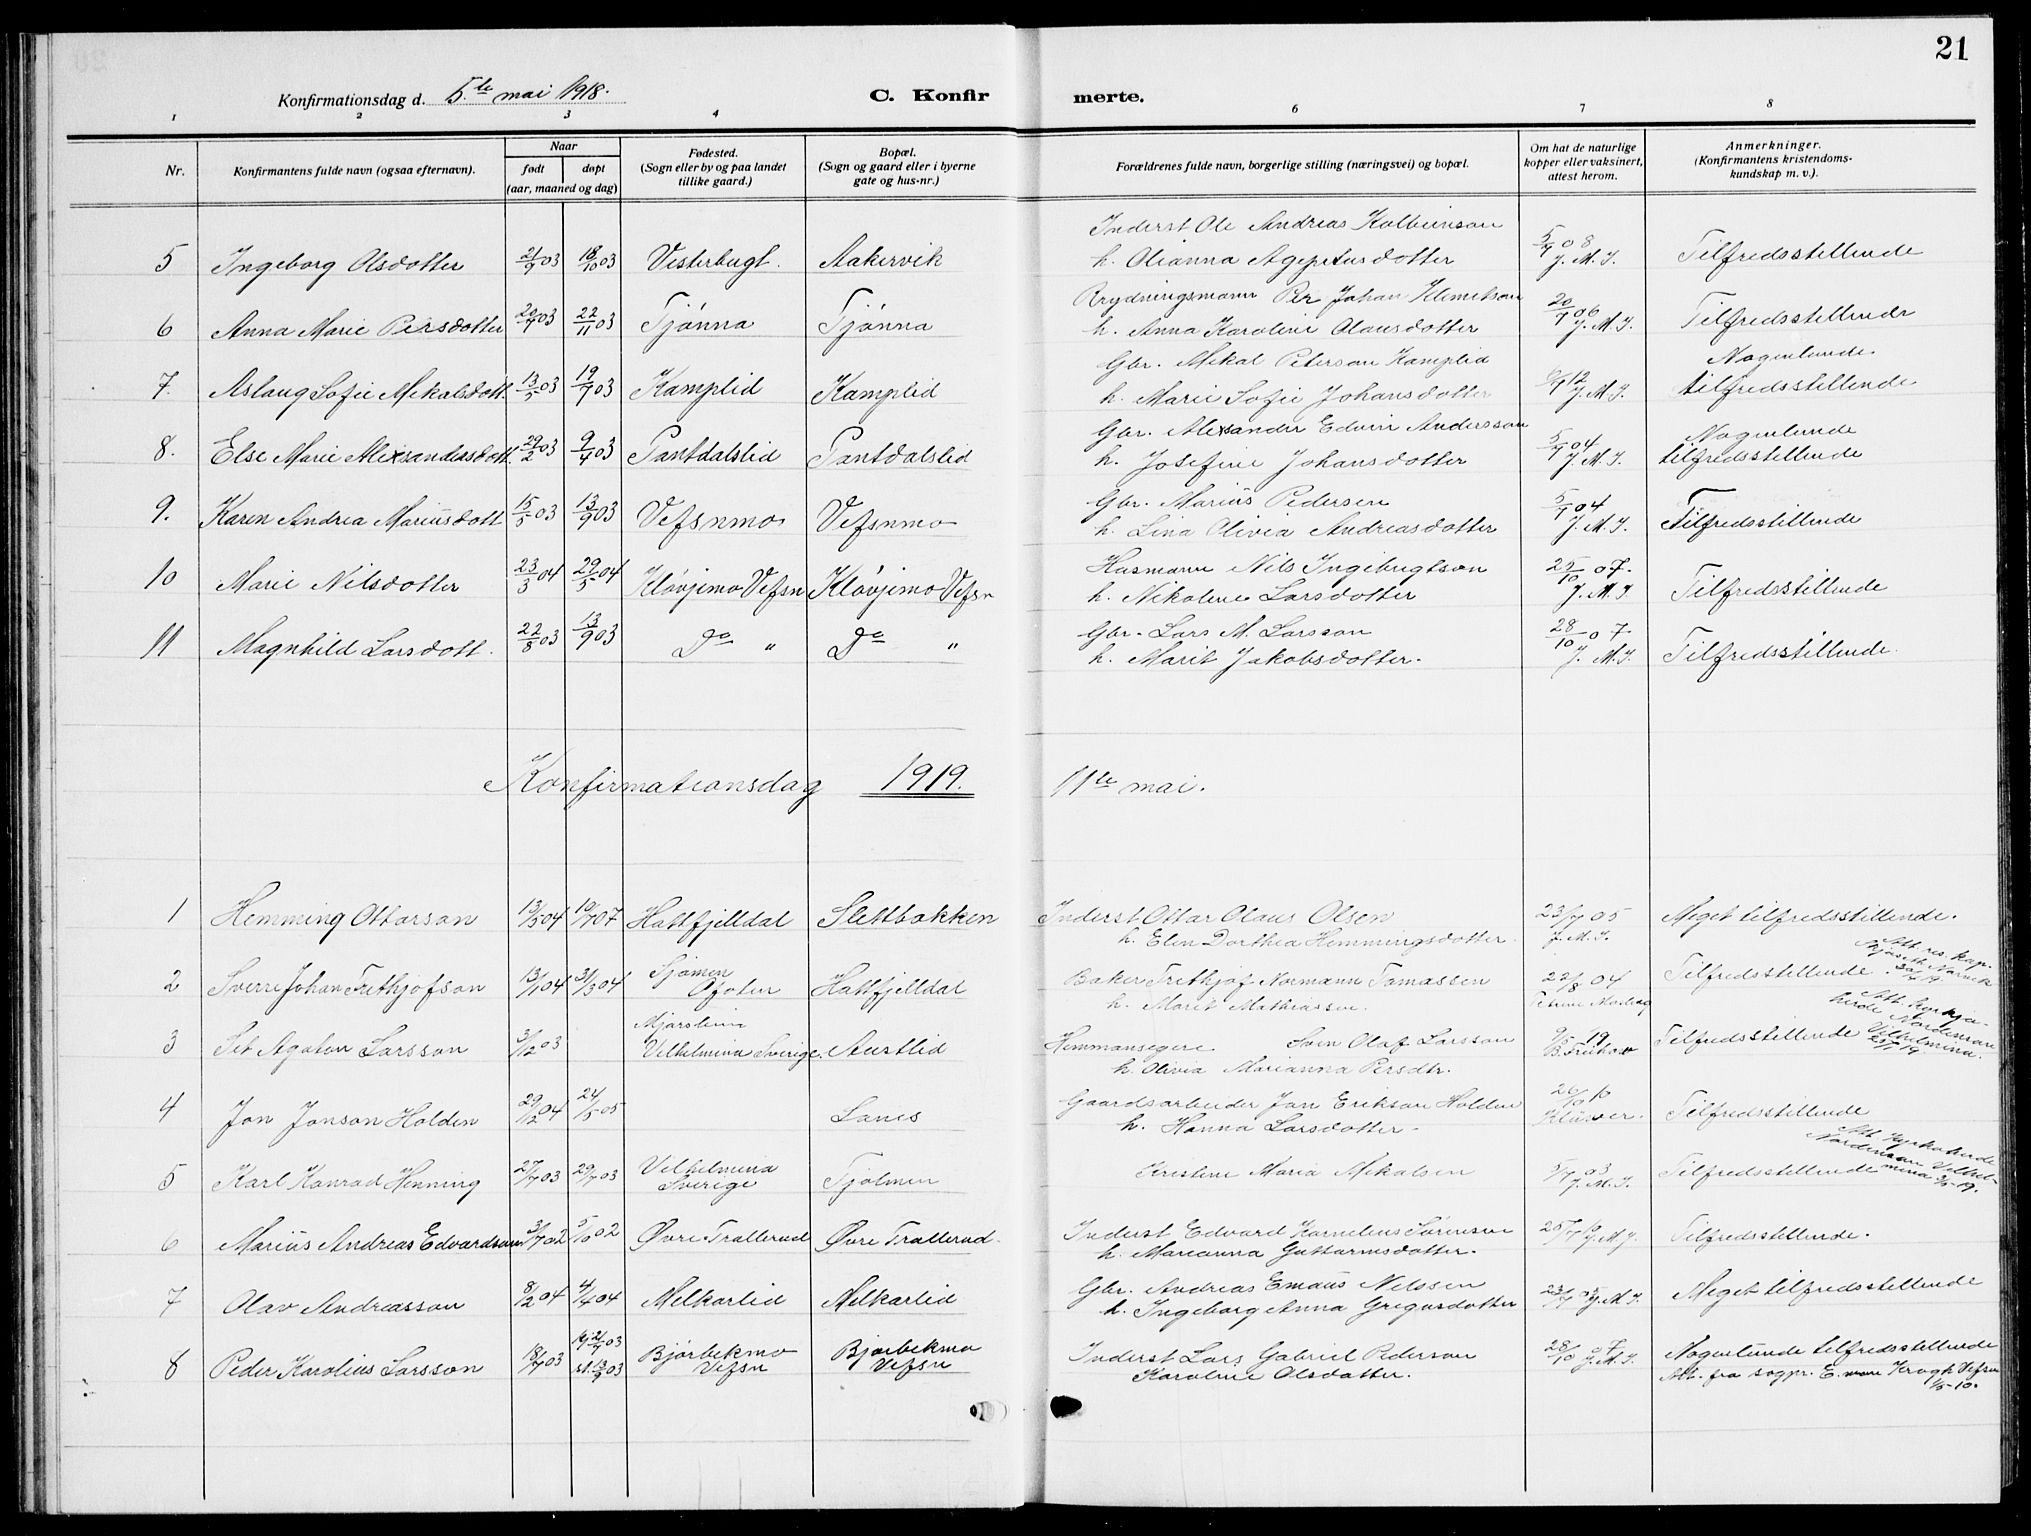 21
Konfirmationsdag d. 5.te mai 1918.
C. Konfir merte.
1 2 3 4 6 7 8
Nr.
Konfirmantens fulde navn (ogsaa efternavn).
Naar
født døpt
(aar, maaned og dag)
Fødested.
(Sogn eller by og paa landet
tillike gaard.)
Bopæl.
(Sogn og gaard eller i byerne
gate og hus-nr.)
Forældrenes fulde navn, borgerlige stilling (næringsvei) og bopæl.
Om hat de naturlige
kopper eller vaksinert,
attest herom.
Anmerkninger.
(Konfirmantens kristendoms-
kundskap m. v.).
Inderst Ole Andreas Kolbeinson
5 Ingeborg Olsdotter 21/9 03 18/10 03 Vesterbugt. Aakervik h. Olianna Agepetusdotter 5/9 08 J. M. J. Tilfredsstillende
Rrydningsmann Per Johan Klemetson
6 Anna Marie Persdotter 20/7 03 22/11 03 Tjønna Tjønna h. Anna Karoline Olausdotter 20/7 06 J. M. J. Tilfredsstillende
Gbr. Mekal Peterson Kamplid Nogenlunde
7. Aslaug Sofie Mekalsdott. 13/5 03 19/7 03 Kamplid Kamplid h. Marie Sofie Johansdotter 12 J. M. J. tilfredsstillende
Gbr. Alexsander Edvin Andersson Nogenlunde
8. Else Marie Alexsandersdott. 29/2 03 9/4 03 Pantdalslid Pantdalslid h. Josefine Johansdotter 5/7 04 J. M. J. tilfredsstillende
Gbr. Marius Pedersen
9. Karen Andrea Mariusdott 15/5 03 13/9 03 Vefsnmo Vefsnmo h. Lina Olivea Andreasdotter 5/7 04 J. M. J. Tilfredsstillende
Husmann Nils Ingebrigtson
10 Marie Nilsdotter 23/3 04 29/5 04 Kløvjemo Vefsn Kløvjemo Vefsn h. Nikoline Larsdotter 29/10 07. J. M. J. Tilfredsstillende
Gbr. Lars M. Larsson
11 Magnhild Larsdott. 22/8 03 13/9 03 Do " Do " h. Marit Jakobsdotter. 28/10 07 J. M. J. Tilfredsstillende.
Konfirmationsdag 1919. 11te mai.
1 Hemming Ottarson 13/5 04 19/7 07 Hattfjelldal Slettbakken Inderst Ottar Olaus Olsen 23/7 05 Meget tilfredsstillende.
h. Elen Dorthea Hemmingsdotter. J. M. J.
2 Sverre Johan Frithjofson 13/1 04 31/3 04 Sjømen Ofoten Hattfjelldal Baker Frithjof Normann Tomassen 22/8 04 Tilfredsstillende. Att. res. kap. Narvik 30/4 19.
h. Marit Mathiassen
3 Set Agaton Larsson 3/12 03 Vilhelmina Sverige. Aurtlid Hemmansegere Sven Olof Larsson 9/5 19 Tilfredsstillende Att. kyrkje-
herde Nordenson Vilhelmina. 23/1 19
h. Olivia Marianna Persdtr.
4 Jon Jonson Holden 29/12 04 24/5 05 Lanes Gaardsarbeider Jon Erikson Holden 26/10 10 Klüwer. Tilfredsstillende
h. Hanna Larsdotter.
5 Karl Konrad Henning 27/7 03 29/7 03 Vilhelmina Sverige Tjolmen Kristine Maria Mikalsen 5/7 03 J. M. J. Tilfredsstillende Att. kyrkoherde
Nordenson Vilhel-
mina 3/5-19.
6 Marius Andreas Edvardson 3/7 02 5/10 02 Øvre Trallerud Øvre Trallerud. Inderst Edvard Kornelius Sørensen 25/7 10 J. M. J. Tilfredsstillende.
h. Marianna Guttormsdotter.
7 Olav Andreasson 8/2 04 4/4 04 Melkarlid Melkarlid Gbr. Andreas Emaus Nelssen 23/7 05 J. M. J. Meget tilfredsstillende
h. Ingeborg Anna Gregusdotter
8 Peder Karolius Larsson 18/7 03 hj. 21/7 03 st. 13/9 03 Bjørbekmo Vefsn Bjørbekmo Vefsn Inderst Lars Gabriel Pederson 28/10 07 J. M. J. Nogenlunde tilfredsstillende
Karoline Olsdatter. Att. fra sogpr. E. Krogh Vefsn
1/5-10.